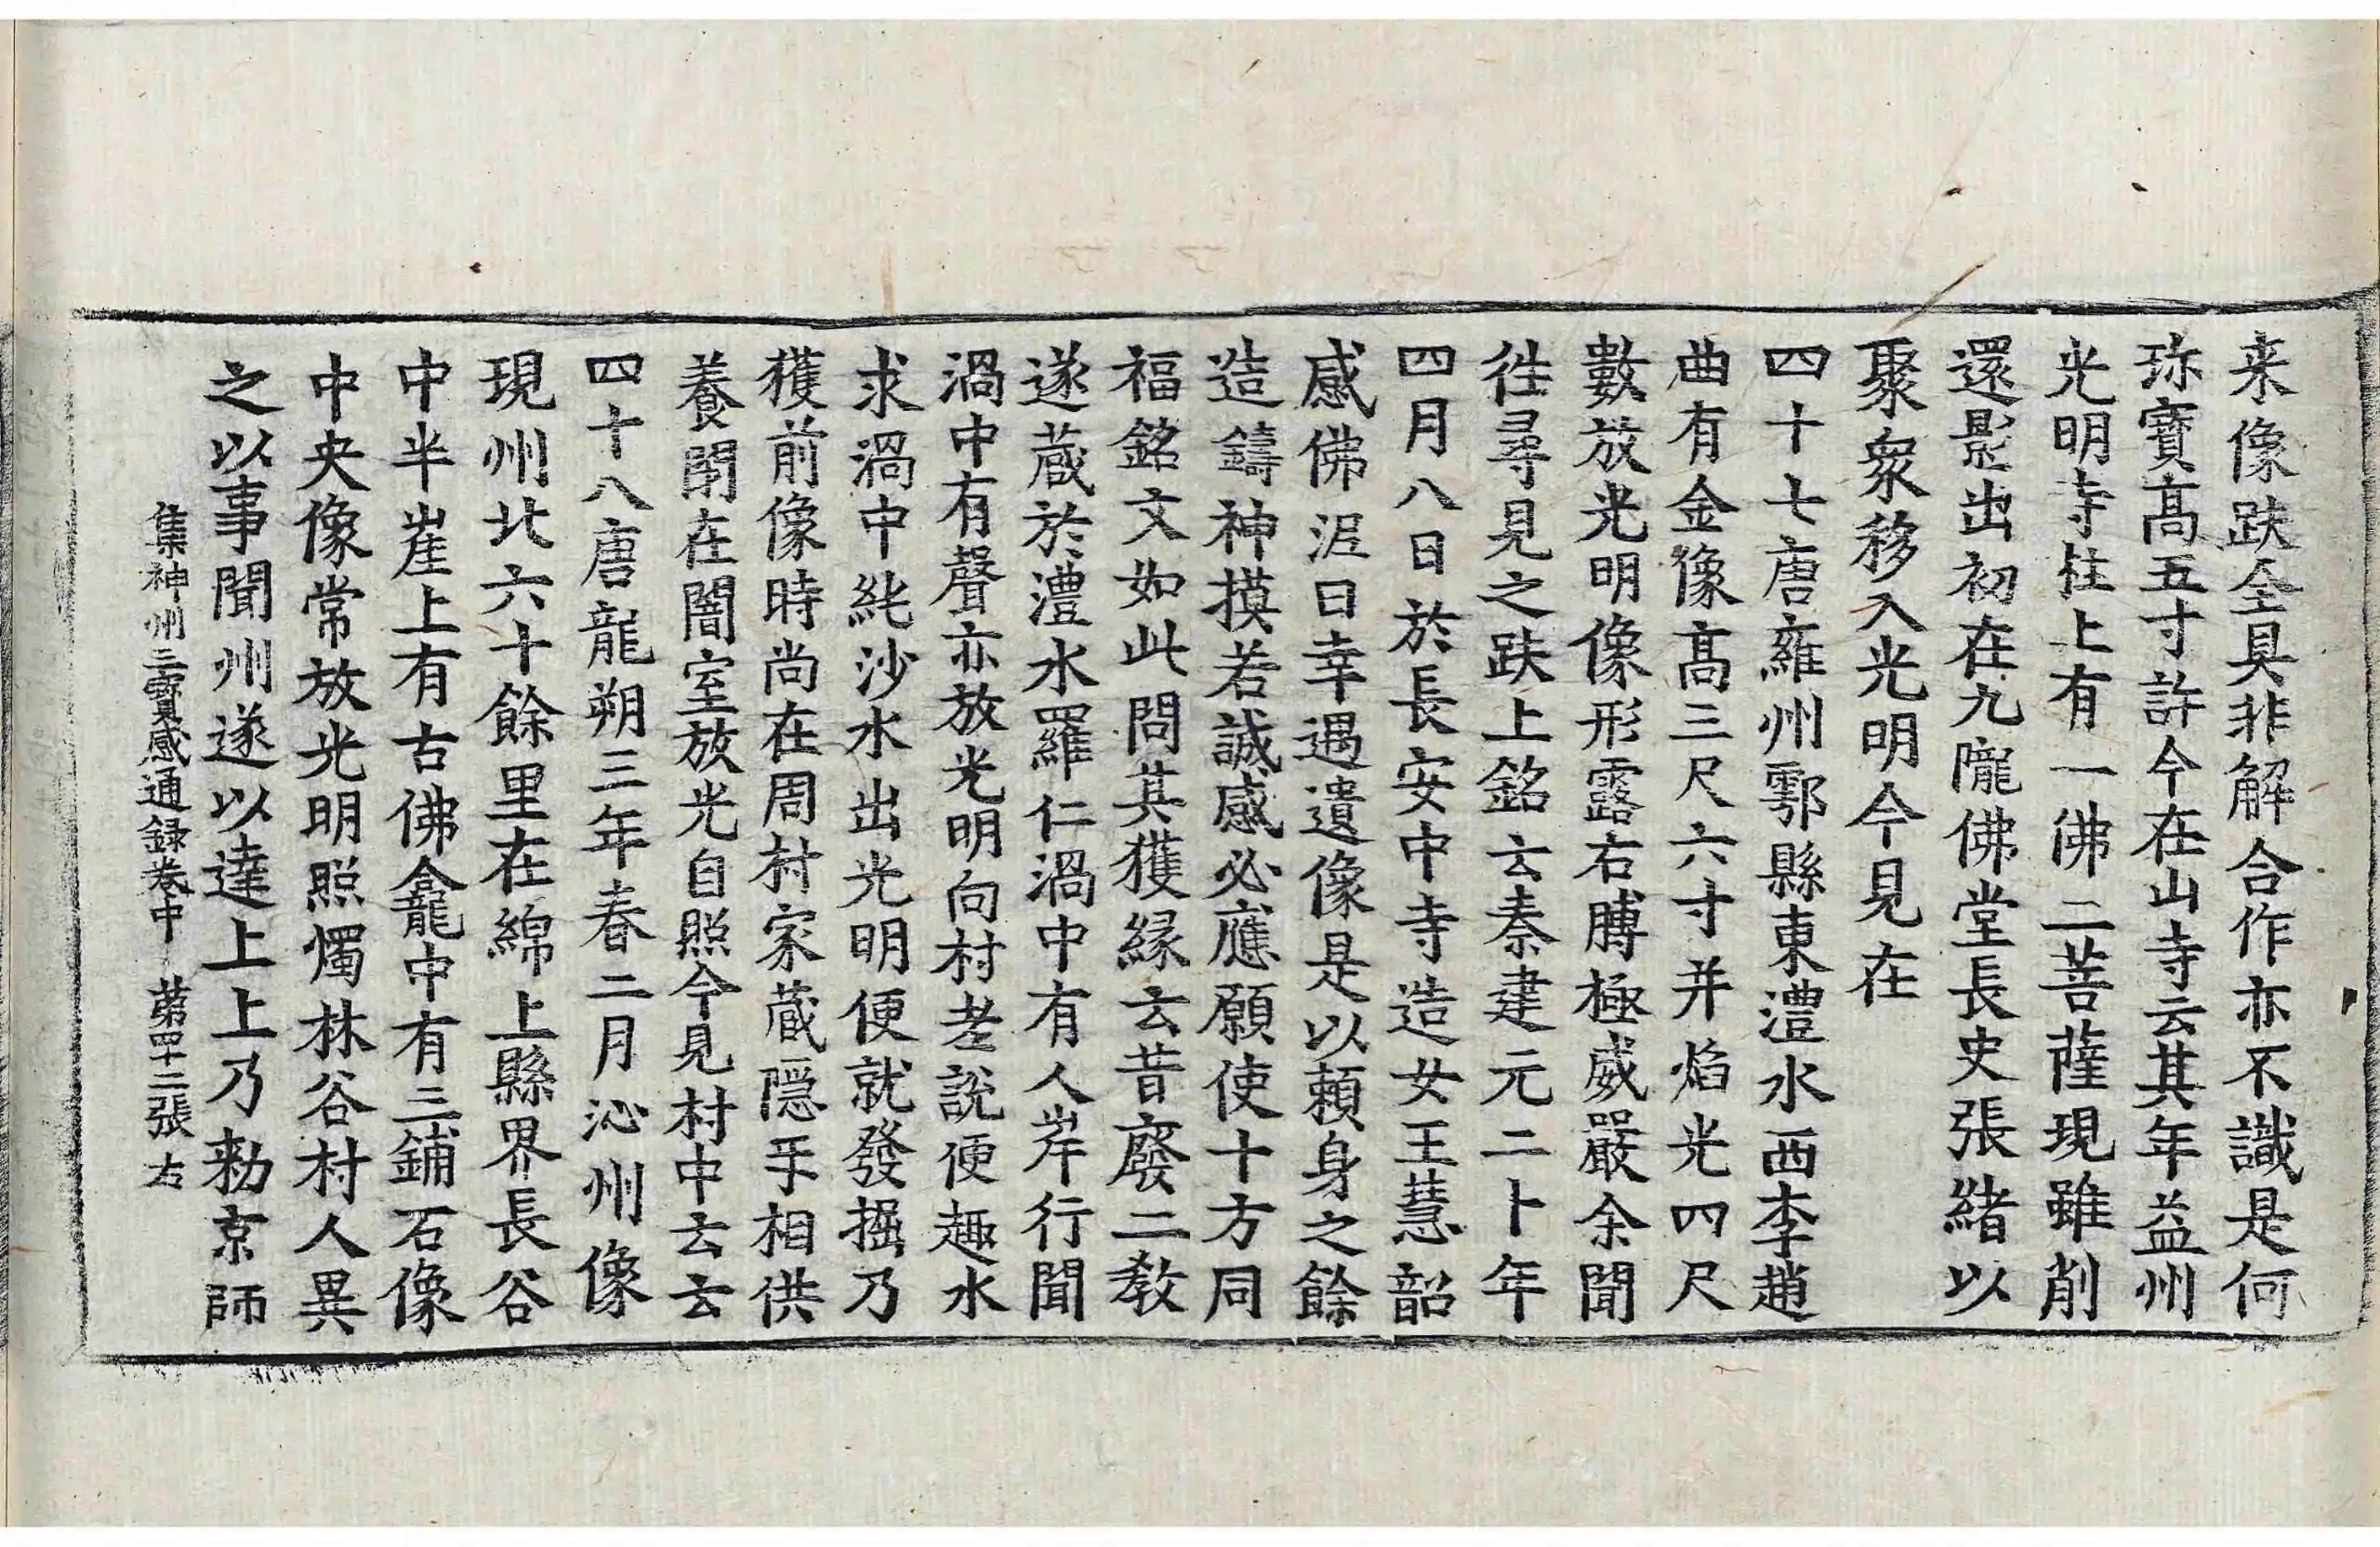 来像趺全具非解合作亦不識是何
珎寶髙五寸許今在山寺云其年益州
光明寺柱上有一佛二菩薩現雖削
還影出初在九隴佛堂長史張緒以
聚衆移入光明今見在
四十七唐雍州鄠縣東澧水西李趙
曲有金像髙三尺六寸并焰光四尺
數放光明像形露右膊極威嚴余聞
往尋見之趺上銘云秦建元二十年
四月八日於長安中寺造女王慧韶
感佛泥曰幸遇遺像是以賴身之餘
造鑄神摸若誠感必應願使十方同
福銘文如此問其獲縁云昔廢二教
遂蔵於澧水羅仁渦中有人岸行聞
渦中有聲亦放光明向村老說便趣水
求渦中純沙水出光明便就發掘乃
獲前像時尚在周村家蔵隠手相供
養閉在闇室放光自照今見村中云云
四十八唐龍朔三年春二月沁州像
現州北六十餘里在綿上縣界長谷
中半崖上有古佛龕中有三鋪石像
中央像常放光明照燭林谷村人異
之以事聞州遂以達上上乃勑京師
集神州三寶感通録卷中 第四十二張 左